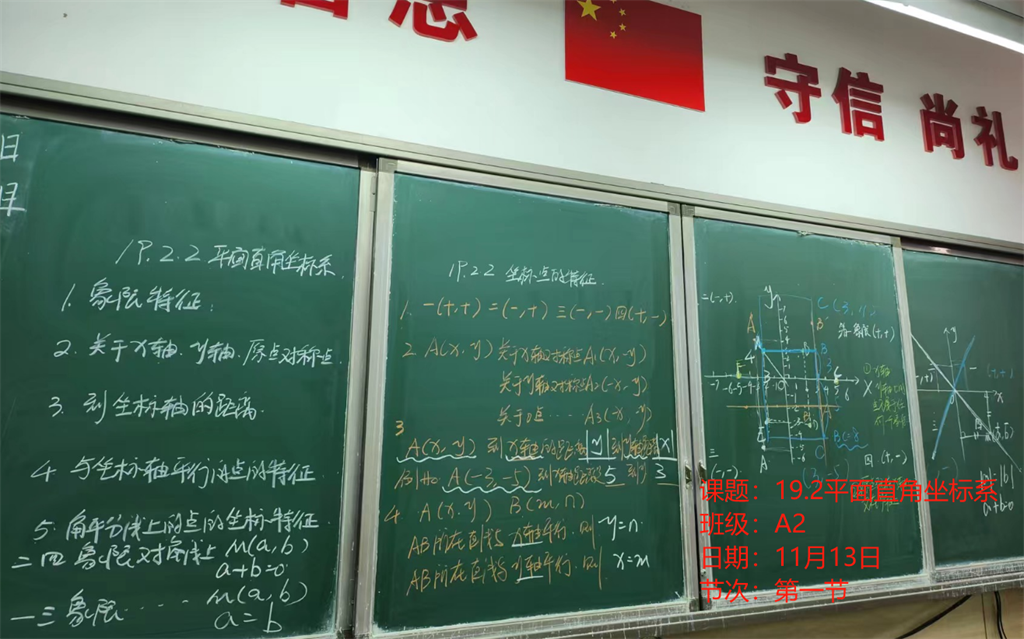 志
守信 尚礼
日
19.2.2 平面直角坐标系.
1. 象限特征.
2. 关于x轴、y轴、原点对称点.
3. 到坐标轴的距离.
4 与坐标轴平行的点的特征.
5. 角平分线上的点的坐标特征.
二四象限对角线上 M(a,b)
a+b=0
一三象限 ····· M(a,b)
a=b
19.2.2 坐标点的特征.
1. 一(+,+) 二(-,+) 三(-,-) 四(+,-)
2 A(x,y) 关于x轴对称点A₁(x,-y)
关于y轴对称点A₂(-x,y)
关于o点 ····· A₃(-x,-y)
3
A(x,y) 到x轴的距离|y| 到y轴距离|x|
例如: A(-3,-5) 到x轴的距离 5 到y 3
4. A(x,y) B(m,n)
AB所在直线与x轴平行. 则 y=n
AB所在直线与y轴平行. 则 x=m
二(-,+).
y
C(3,
A
B
各一象限(+,+)
E
-7 -6 -5 -4
x
三
(-,-)
四(+,-)
(3,-5)
y
x
a+b=0
课题：19.2平面直角坐标系
班级：A2
日期：11月13日
节次：第一节